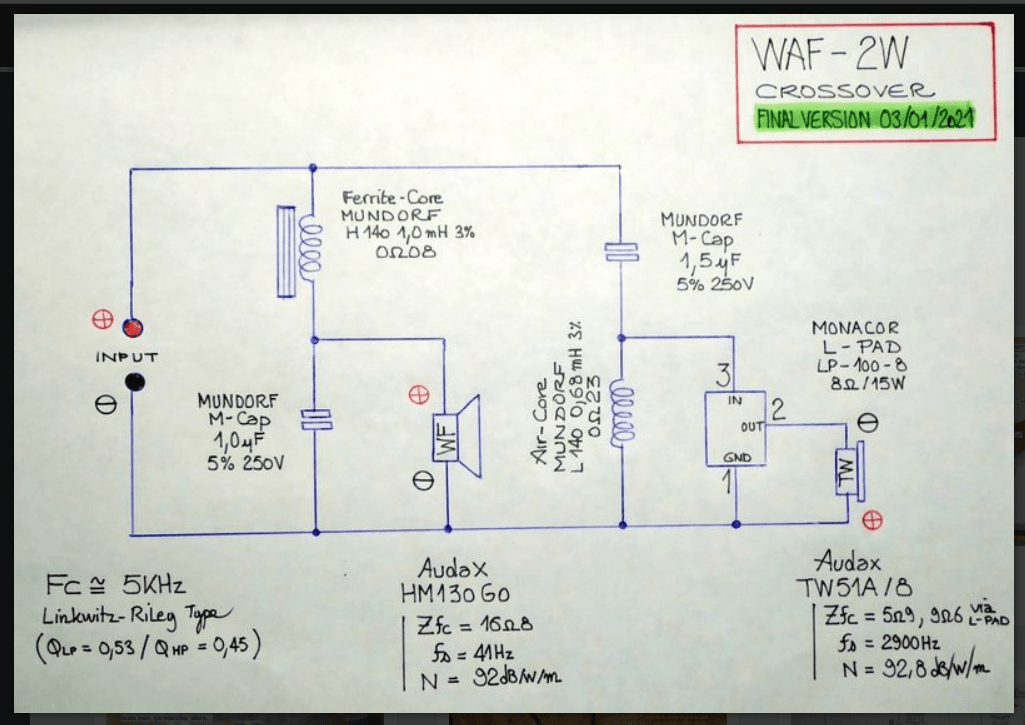 WAF-2W
CROSSOVER
FINAL VERSION 03/01/2021
Ferrite-Core
MUNDORF
H 140 1,0 mH 3%
0Ω08
MUNDORF
M-Cap
1,5µF
5% 250V
⊕
INPUT
⊖
MUNDORF
M-Cap
1,0µF
5% 250V
⊕
WF
⊖
Air-Core
MUNDORF
L 140 0,68mH 3%
0Ω23
MONACOR
L-PAD
LP-100-8
8Ω/15W
3
IN
2
OUT
GND
1
⊖
TW
⊕
Fc ≅ 5KHz
Linkwitz-Riley Type
(QLP = 0,53 / QHP = 0,45)
Audax
HM130G0
Zfc = 16Ω8
fs = 41Hz
N = 92dB/W/m
Audax
TW51A/8
Zfc = 5Ω9, 9Ω6 via L-PAD
fs = 2900Hz
N = 92,8 dB/W/m